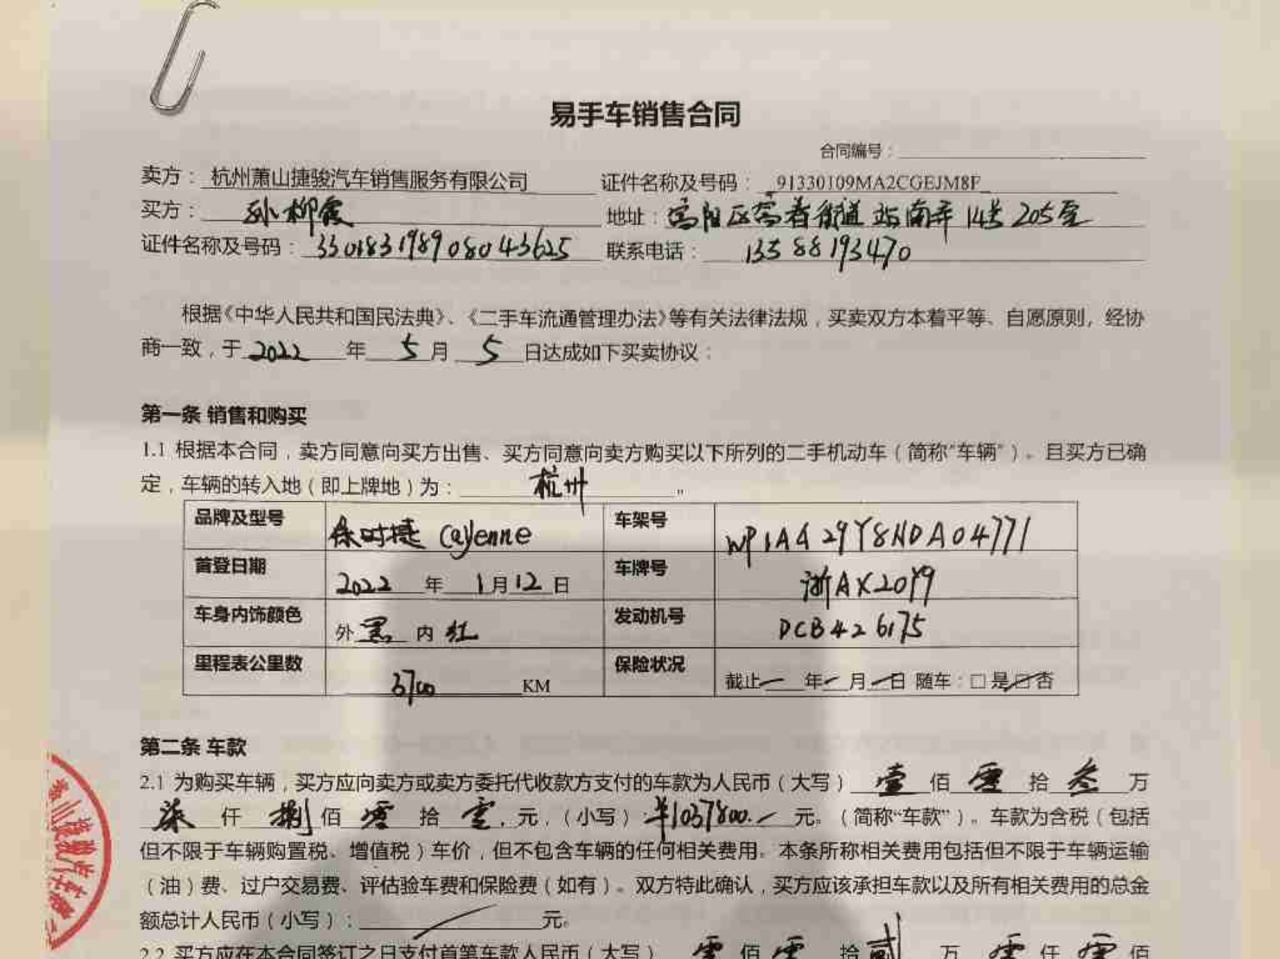 易手车销售合同
合同编号：
卖方：杭州萧山捷骏汽车销售服务有限公司 证件名称及号码：91330109MA2CGEJM8F
买方：孙柳霞 地址：富阳区富春街道站南弄14号205室
证件名称及号码：330183198908043625 联系电话：13588193470
根据《中华人民共和国民法典》、《二手车流通管理办法》等有关法律法规，买卖双方本着平等、自愿原则，经协
商一致，于2022年5月5日达成如下买卖协议：
第一条 销售和购买
1.1 根据本合同，卖方同意向买方出售、买方同意向卖方购买以下所列的二手机动车（简称“车辆”）。且买方已确
定，车辆的转入地（即上牌地）为：杭州。
品牌及型号 保时捷 Cayenne 车架号 WP1AA29Y8NDA04771
首登日期 2022年1月12日 车牌号 浙AX20Y9
车身内饰颜色 外黑内红 发动机号 DCB426175
里程表公里数 3700 KM 保险状况 截止 年 月 日 随车：□是□否
第二条 车款
2.1 为购买车辆，买方应向卖方或卖方委托代收款方支付的车款为人民币（大写）壹佰零拾叁万
柒仟捌佰零拾零元，（小写）¥1037800.元。（简称“车款”）。车款为含税（包括
但不限于车辆购置税、增值税）车价，但不包含车辆的任何相关费用。本条所称相关费用包括但不限于车辆运输
（油）费、过户交易费、评估验车费和保险费（如有）。双方特此确认，买方应该承担车款以及所有相关费用的总金
额总计人民币（小写）：元。
2.2 买方应在本合同签订之日支付首笔车款人民币（大写）零佰零拾贰万零仟零佰